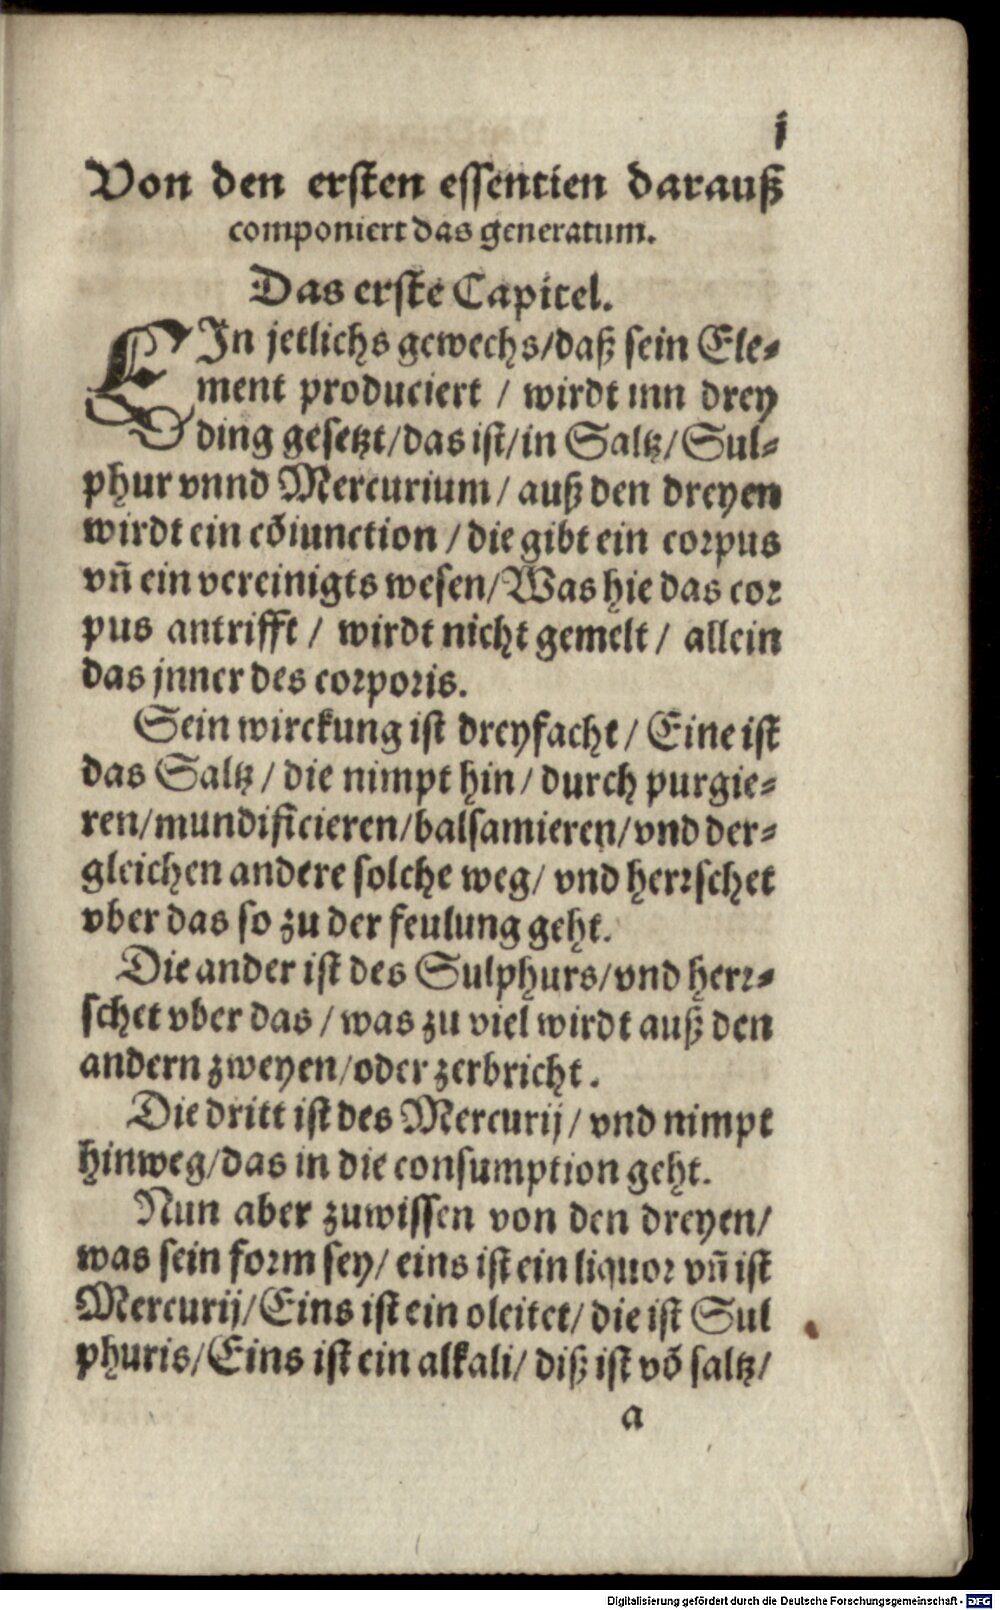 j
Von den ersten essentien darauß
componiert das generatum.
Das erste Capitel.
EIn jetlichs gewechs/daß sein Ele-
ment produciert / wirdt inn drey
ding gesetzt/das ist/in Saltz/Sul-
phur vnnd Mercurium/ auß den dreyen
wirdt ein cõiunction / die gibt ein corpus
vñ ein vereinigts wesen/Was hie das cor
pus antrifft / wirdt nicht gemelt / allein
das jnner des corporis.
Sein wirckung ist dreyfacht/ Eine ist
das Saltz / die nimpt hin / durch purgie-
ren/mundificieren/balsamieren/vnd der-
gleichen andere solche weg/ vnd herrschet
vber das so zu der feulung geht.
Die ander ist des Sulphurs/vnd herr-
schet vber das / was zu viel wirdt auß den
andern zweyen/oder zerbricht.
Die dritt ist des Mercurij/ vnd nimpt
hinweg/das in die consumption geht.
Nun aber zuwissen von den dreyen/
was sein form sey/ eins ist ein liquor vñ ist
Mercurij/Eins ist ein oleitet/ die ist Sul
phuris/Eins ist ein alkali/ diß ist võ saltz/
a
Digitalisierung gefördert durch die Deutsche Forschungsgemeinschaft - DFG